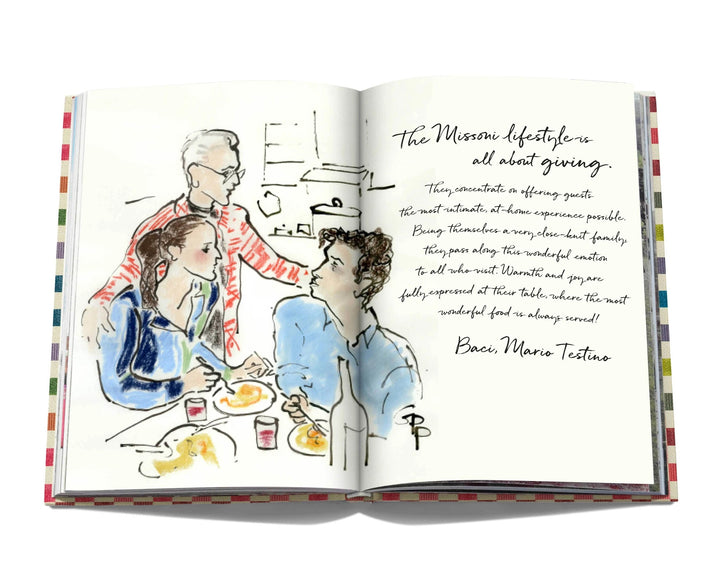 The Missoni lifestyle is
all about giving.
They concentrate on offering guests
the most intimate, at-home experience possible.
Being themselves a very close-knit family,
they pass along this wonderful emotion
to all who visit. Warmth and joy are
fully expressed at their table, where the most
wonderful food is always served!
Baci, Mario Testino